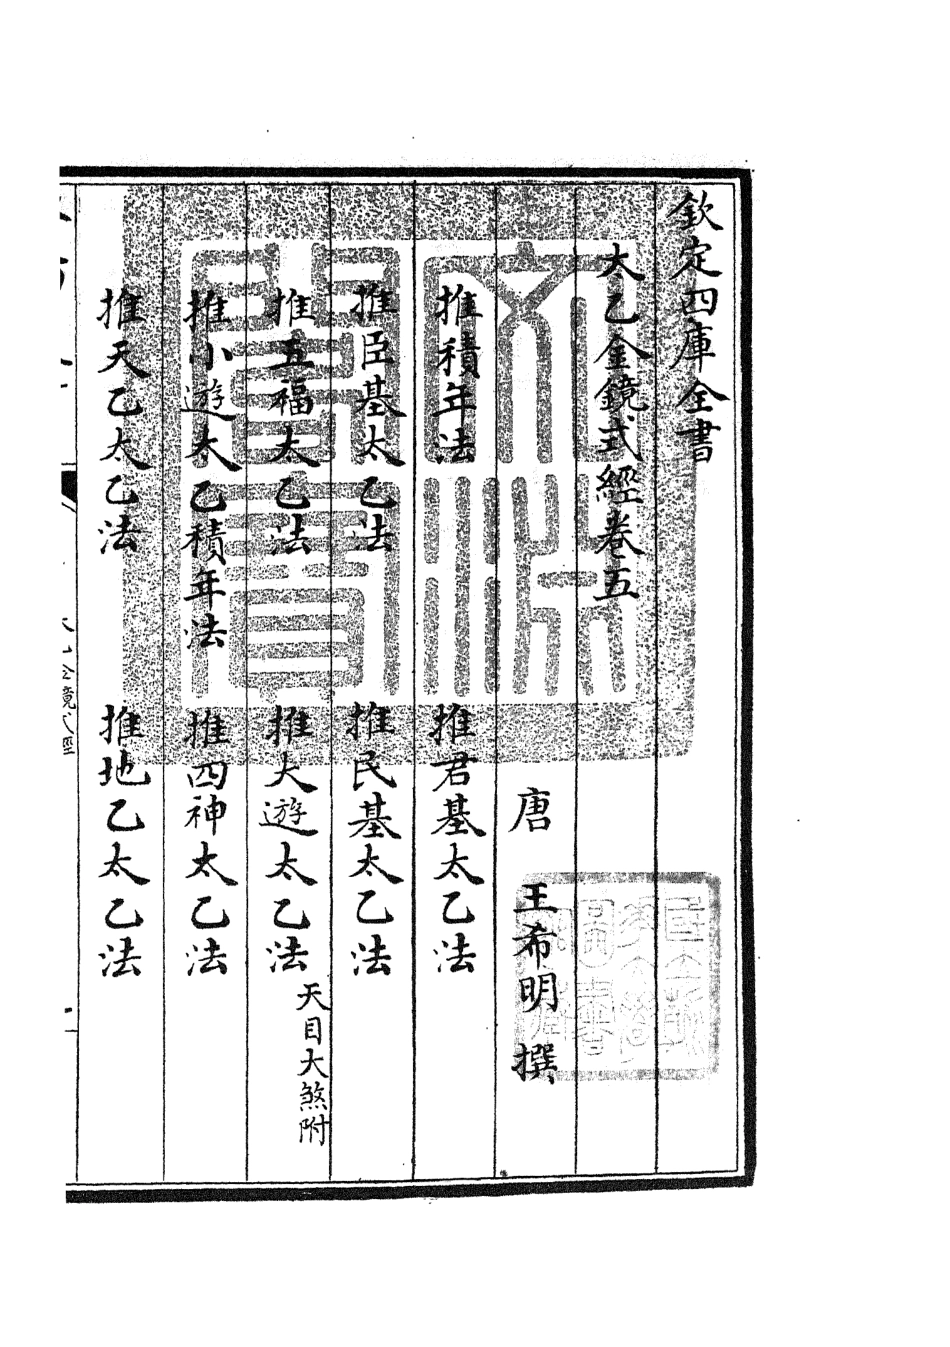 欽定四庫全書
太乙金鏡式經卷五
唐 王希明 撰
推積年法 推君基太乙法
推臣基太乙法 推民基太乙法
推五福太乙法 推大遊太乙法 天目大煞附
推小遊太乙積年法 推四神太乙法
推天乙太乙法 推地乙太乙法